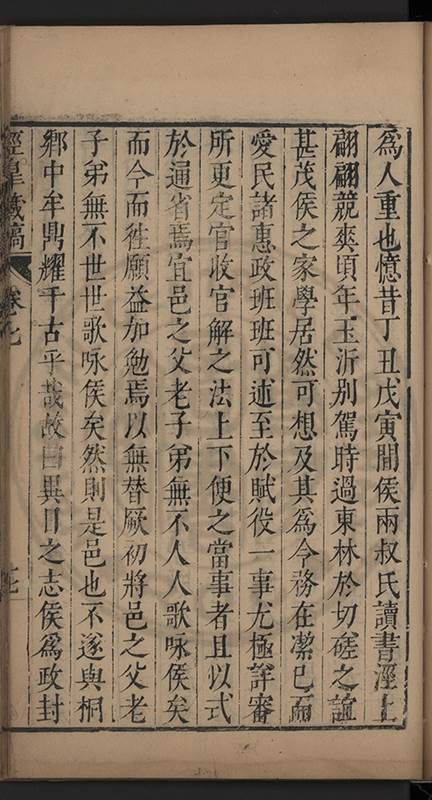 為人重也憶昔丁丑戊寅間侯兩叔氏讀書涇上
翩翩競爽頃年玉沂別駕時過東林於切磋之誼
甚茂侯之家學居然可想及其為令務在潔己而
愛民諸惠政班班可述至於賦役一事尤極詳審
所更定官收官解之法上下便之當事者且以式
於通省焉宜邑之父老子弟無不人人歌咏侯矣
而今而徃願益加勉焉以無替厥初將邑之父老
子弟無不世世歌咏侯矣然則是邑也不遂與桐
鄉中牟鼎耀千古乎哉故曰異日之志侯為政封
涇皐藏稿
卷七